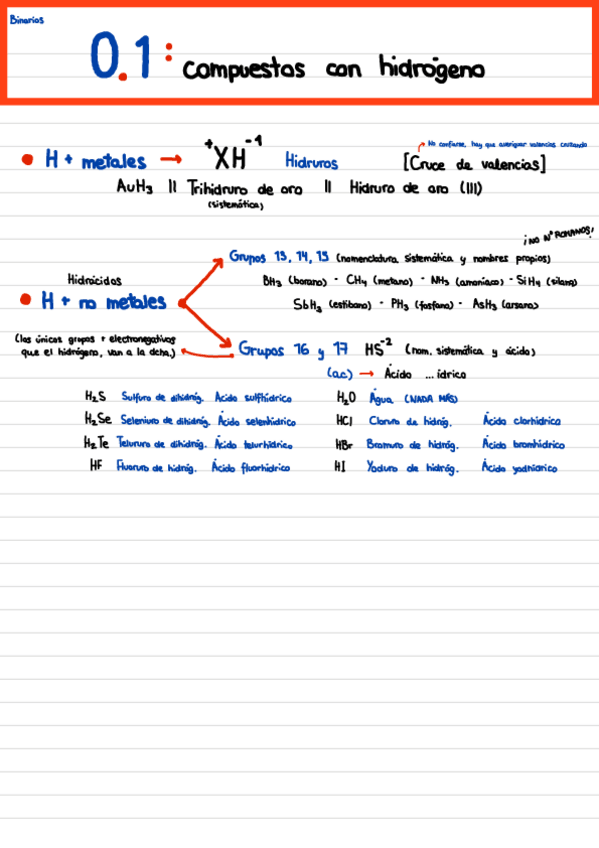 Binarios
0.1: compuestos con hidrógeno
No confiarse, hay que averiguar valencias cruzando
• H + metales → ⁺XH⁻¹ Hidruros [Cruce de valencias]
AuH₃ || Trihidruro de oro || Hidruro de oro (III)
(sistemática)
¡NO Nº ROMANOS!
Grupos 13, 14, 15 (nomenclatura sistemática y nombres propios)
Hidrácidos
BH₃ (borano) - CH₄ (metano) - NH₃ (amoníaco) - SiH₄ (silano)
• H + no metales
SbH₃ (estibano) - PH₃ (fosfano) - AsH₃ (arsano)
(los únicos grupos + electronegativos
que el hidrógeno, van a la dcha.)
Grupos 16 y 17 HS⁻² (nom. sistemática y ácido)
(a.c) → Ácido ...ídrico
H₂S Sulfuro de dihidróg. Ácido sulfhídrico
H₂O Agua (NADA MÁS)
H₂Se Seleniuro de dihidróg. Ácido selenhídrico
HCl Cloruro de hidróg. Ácido clorhídrico
H₂Te Telururo de dihidróg. Ácido telurhídrico
HBr Bromuro de hidróg. Ácido bromhídrico
HF Fluoruro de hidróg. Ácido fluorhídrico
HI Yoduro de hidróg. Ácido yodhídrico